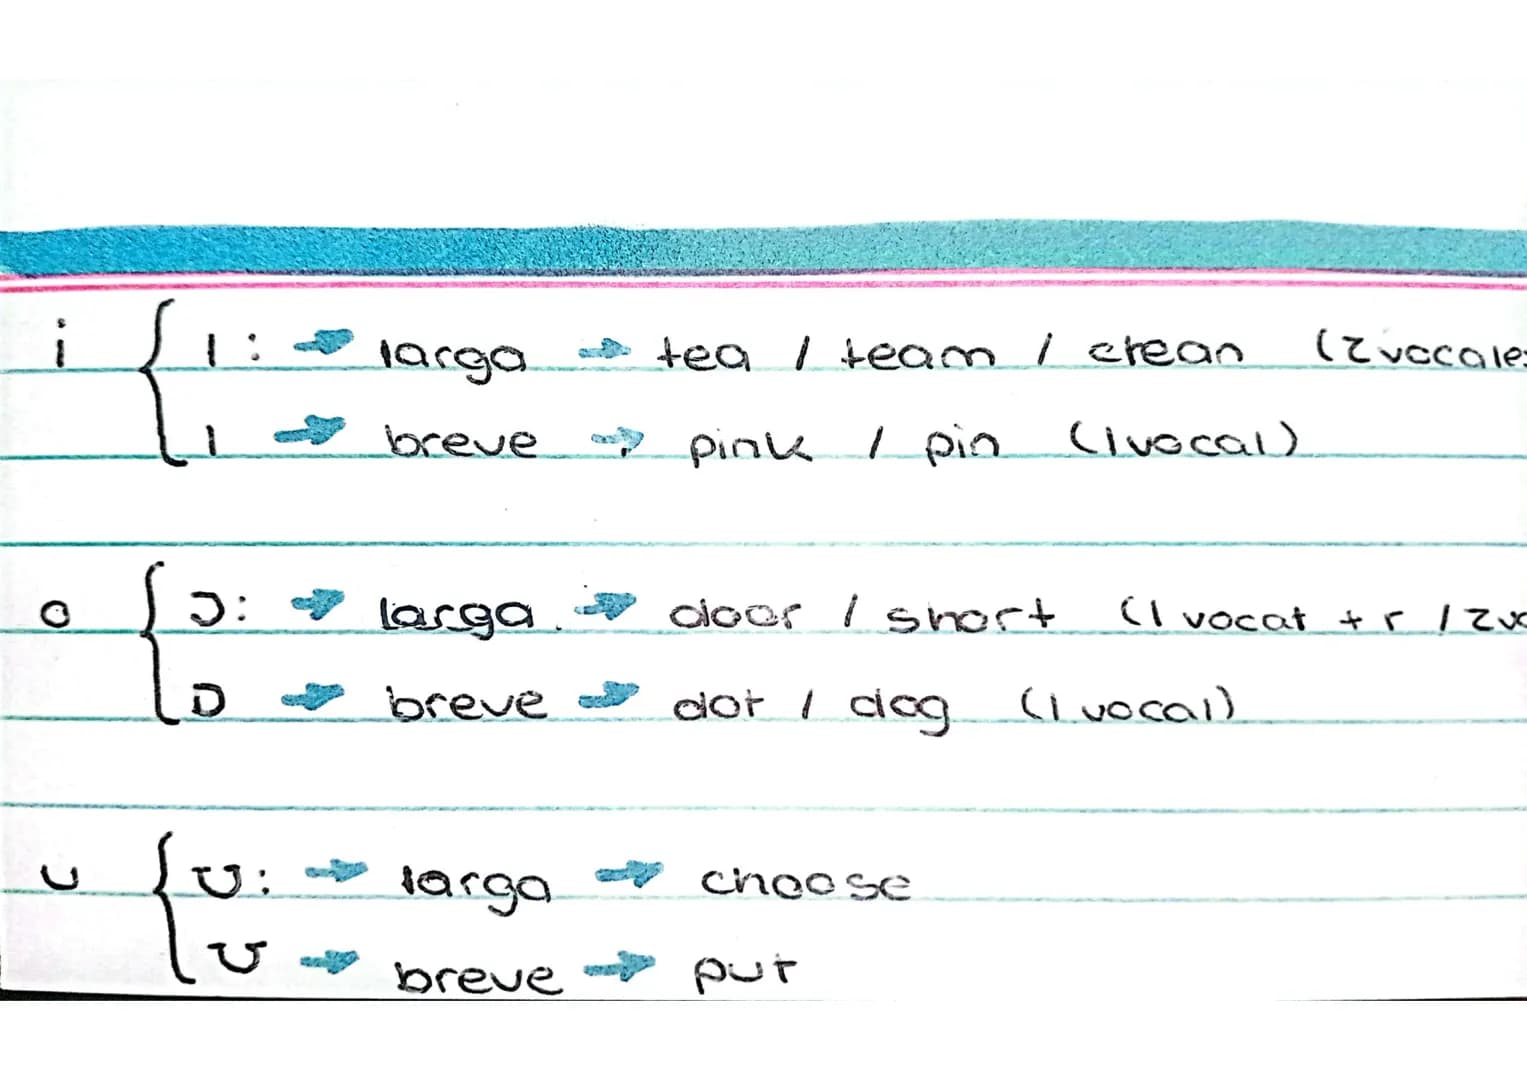 i { I: → larga → tea / team / clean (2 vocales
I → breve → pink / pin (1 vocal)
o { ɔ: → larga → door / short (1 vocal + r / 2 vo
ɒ → breve → dot / dog (1 vocal)
u { ʊ: → larga → choose
ʊ → breve → put